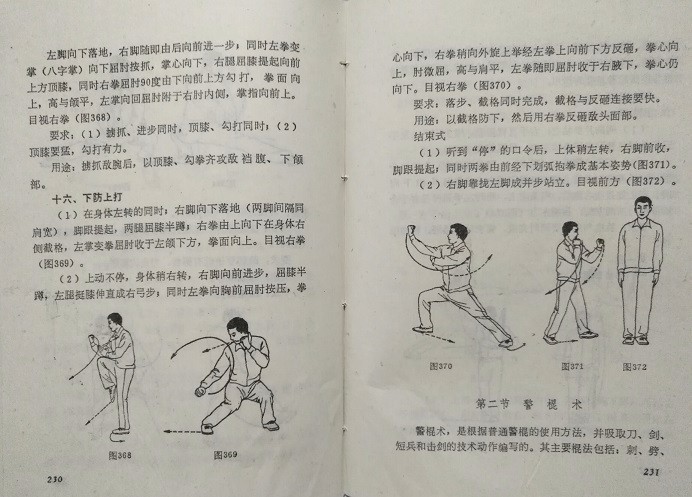 左脚向下落地，右脚随即由后向前进一步；同时左拳变
掌（八字掌）向下屈肘按抓，掌心向下，右腿屈膝提起向前
上方顶膝，同时右拳屈肘90度由下向前上方勾打，拳面向
上，高与颌平，左掌向回屈肘附于右肘内侧，掌指向前上。
目视右拳（图368）。
要求：（1）掳抓、进步同时，顶膝、勾打同时；（2）
顶膝要猛，勾打有力。
用途：掳抓敌腕后，以顶膝、勾拳齐攻敌裆腹、下颌
部。
十六、下防上打
（1）在身体左转的同时；右脚向下落地（两脚间隔同
肩宽），脚跟提起，两腿屈膝半蹲；右拳由上向下在身体右
侧截格，左掌变拳屈肘收于左颌下方，拳面向上。目视右拳
（图369）。
（2）上动不停，身体稍右转，右脚向前进步，屈膝半
蹲，左腿挺膝伸直成右弓步；同时左拳向胸前屈肘按压，拳
图368
图369
230
心向下，右拳稍向外旋上举经左拳上向前下方反砸，拳心向
上，肘微屈，高与肩平，左拳随即屈肘收于右腋下，拳心仍
向下。目视右拳（图370）。
要求：落步、截格同时完成，截格与反砸连接要快。
用途：以截格防下，然后用右拳反砸敌头面部。
结束式
（1）听到“停”的口令后，上体稍左转，右脚前收，
脚跟提起；同时两拳由前经下划弧抱拳成基本姿势(图371)。
（2）右脚靠拢左脚成并步站立。目视前方（图372）。
图370
图371
图372
第二节 警棍术
警棍术，是根据普通警棍的使用方法，并吸取刀、剑、
短兵和击剑的技术动作编写的。其主要棍法包括：刺、劈、
231